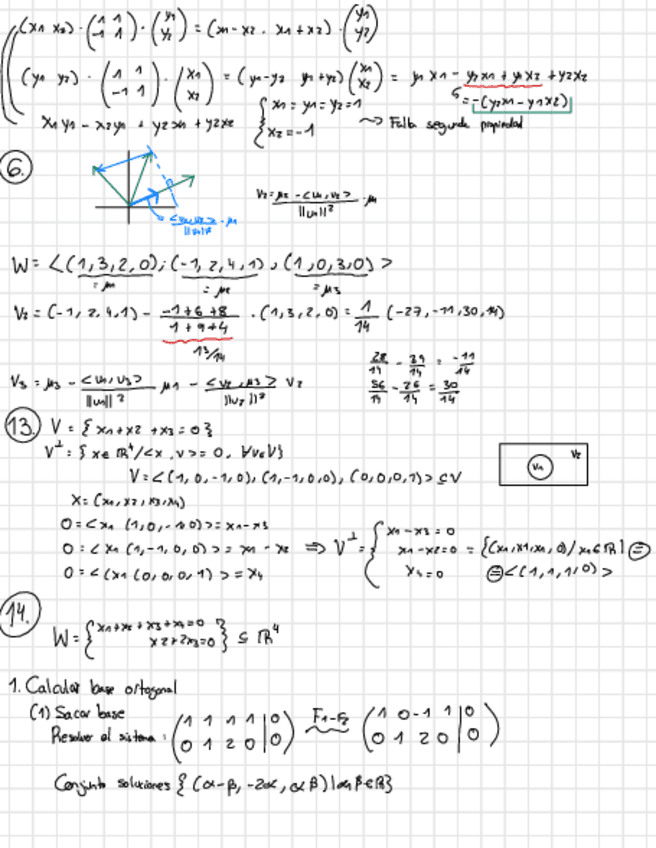 (x1 x2) · (1 1 / -1 1) · (y1 / y2) = (x1-x2 · x1+x2) · (y1 / y2)
(y1 y2) · (1 1 / -1 1) · (x1 / x2) = (y1-y2 y1+y2) (x1 / x2) = y1x1 - y2x1 + y1x2 + y2x2
= -(y2x1 - y1x2)
x1y1 - x2y1 + y2x1 + y2x2 { x1 = y1 = y2 = 1
x2 = -1 ~> Falla segunda propiedad
6.
V2 = μ2 - <u1, v2> / ||u1||² · μ1
W = <(1,3,2,0); (-1,2,4,1), (1,0,3,0)>
= μ1 = μ2 = μ3
V2 = (-1,2,4,1) - (-1+6+8) / (1+9+4) · (1,3,2,0) = 1/14 (-27,-11,30,14)
13/14
28/14 - 39/14 = -11/14
56/14 - 26/14 = 30/14
V3 = μ3 - <u1,u3> / ||u1||² μ1 - <v2,μ3> / ||v2||² V2
13. V = {x1+x2+x3=0}
V⊥ = {x∈ℝ⁴/<x,v>=0, ∀v∈V}
V2
V1
V = <(1,0,-1,0), (1,-1,0,0), (0,0,0,1)> ⊆ V
X = (x1,x2,x3,x4)
0 = <x1 (1,0,-1 0)> = x1-x3
0 = <x1 (1,-1,0,0)> = x1-x2 ⇒ V⊥ = { x1-x3=0
x1-x2=0
x4=0 = {(x1,x1,x1,0)/x1∈ℝ} =
0 = <(x1 (0,0,0,1)> = x4
= <(1,1,1,0)>
14.
W = { x1+x2+x3+x4=0
x2+2x3=0 } ⊆ ℝ⁴
1. Calcular base ortogonal
(1) Sacar base
Resolver el sistema: (1 1 1 1 | 0 / 0 1 2 0 | 0) F1-F2 (1 0 -1 1 | 0 / 0 1 2 0 | 0)
Conjunto soluciones {(α-β, -2α, α β) | α, β∈ℝ}